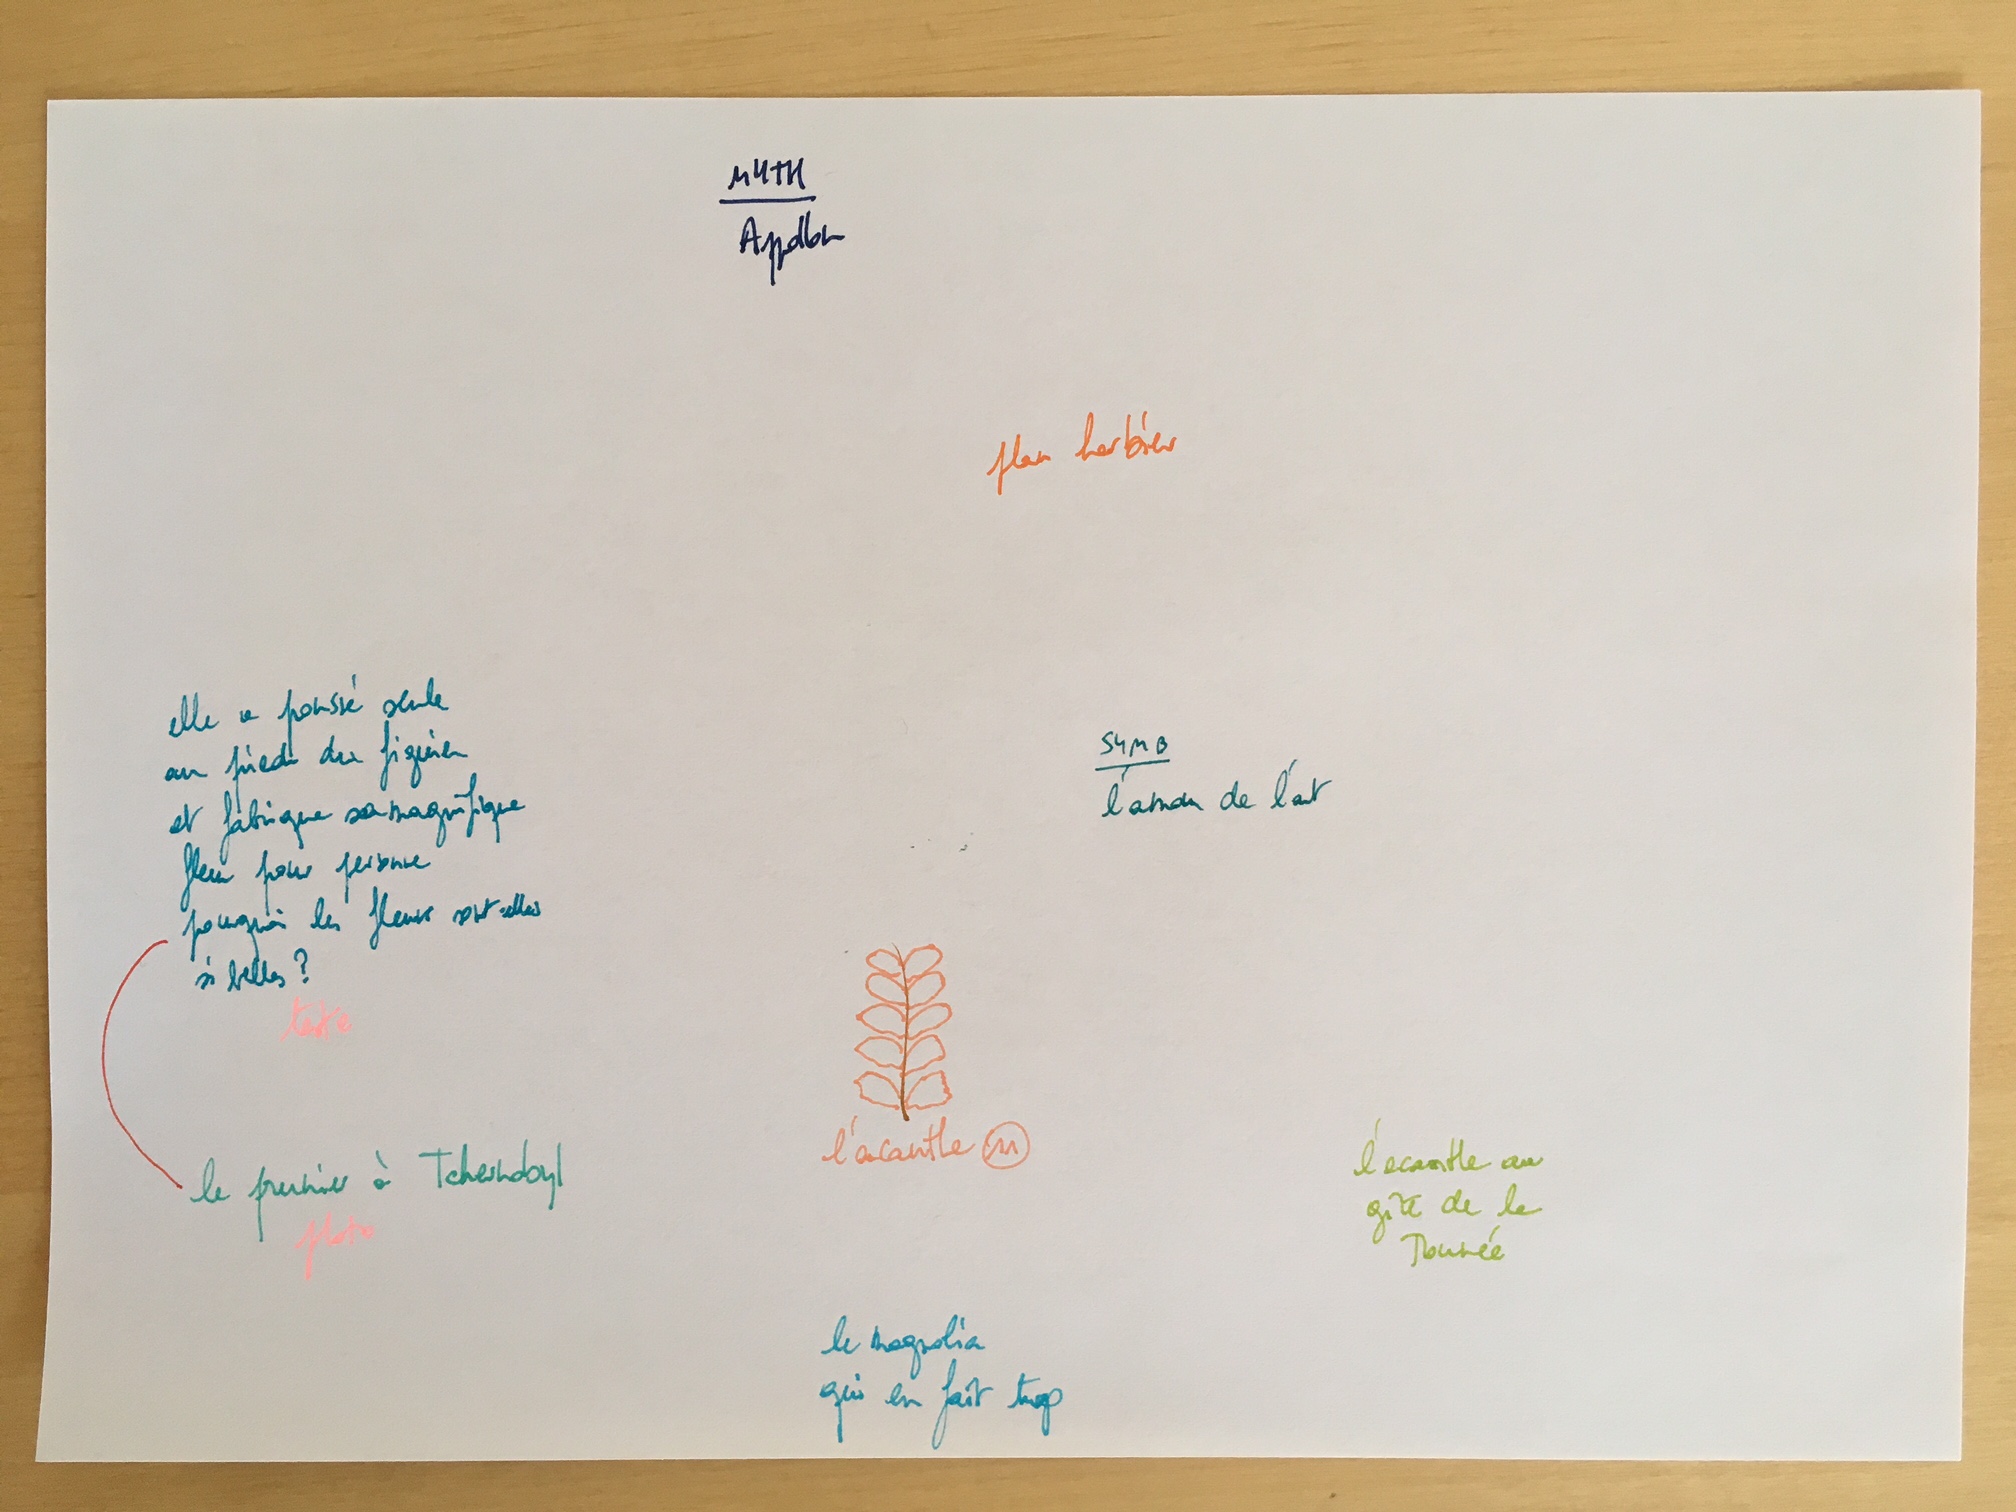 MYTH
Apollon
plan herbier
elle a poussé seule
au pied du figuier
et fabrique sa magnifique
fleur pour personne
pourquoi les fleurs sont-elles
si belles ?
texte
SYMB
l'amour de l'art
l'acanthe m
le prunier à Tchernobyl
photo
l'acanthe au
gîte de la
Tournée
le magnolia
qui en fait trop